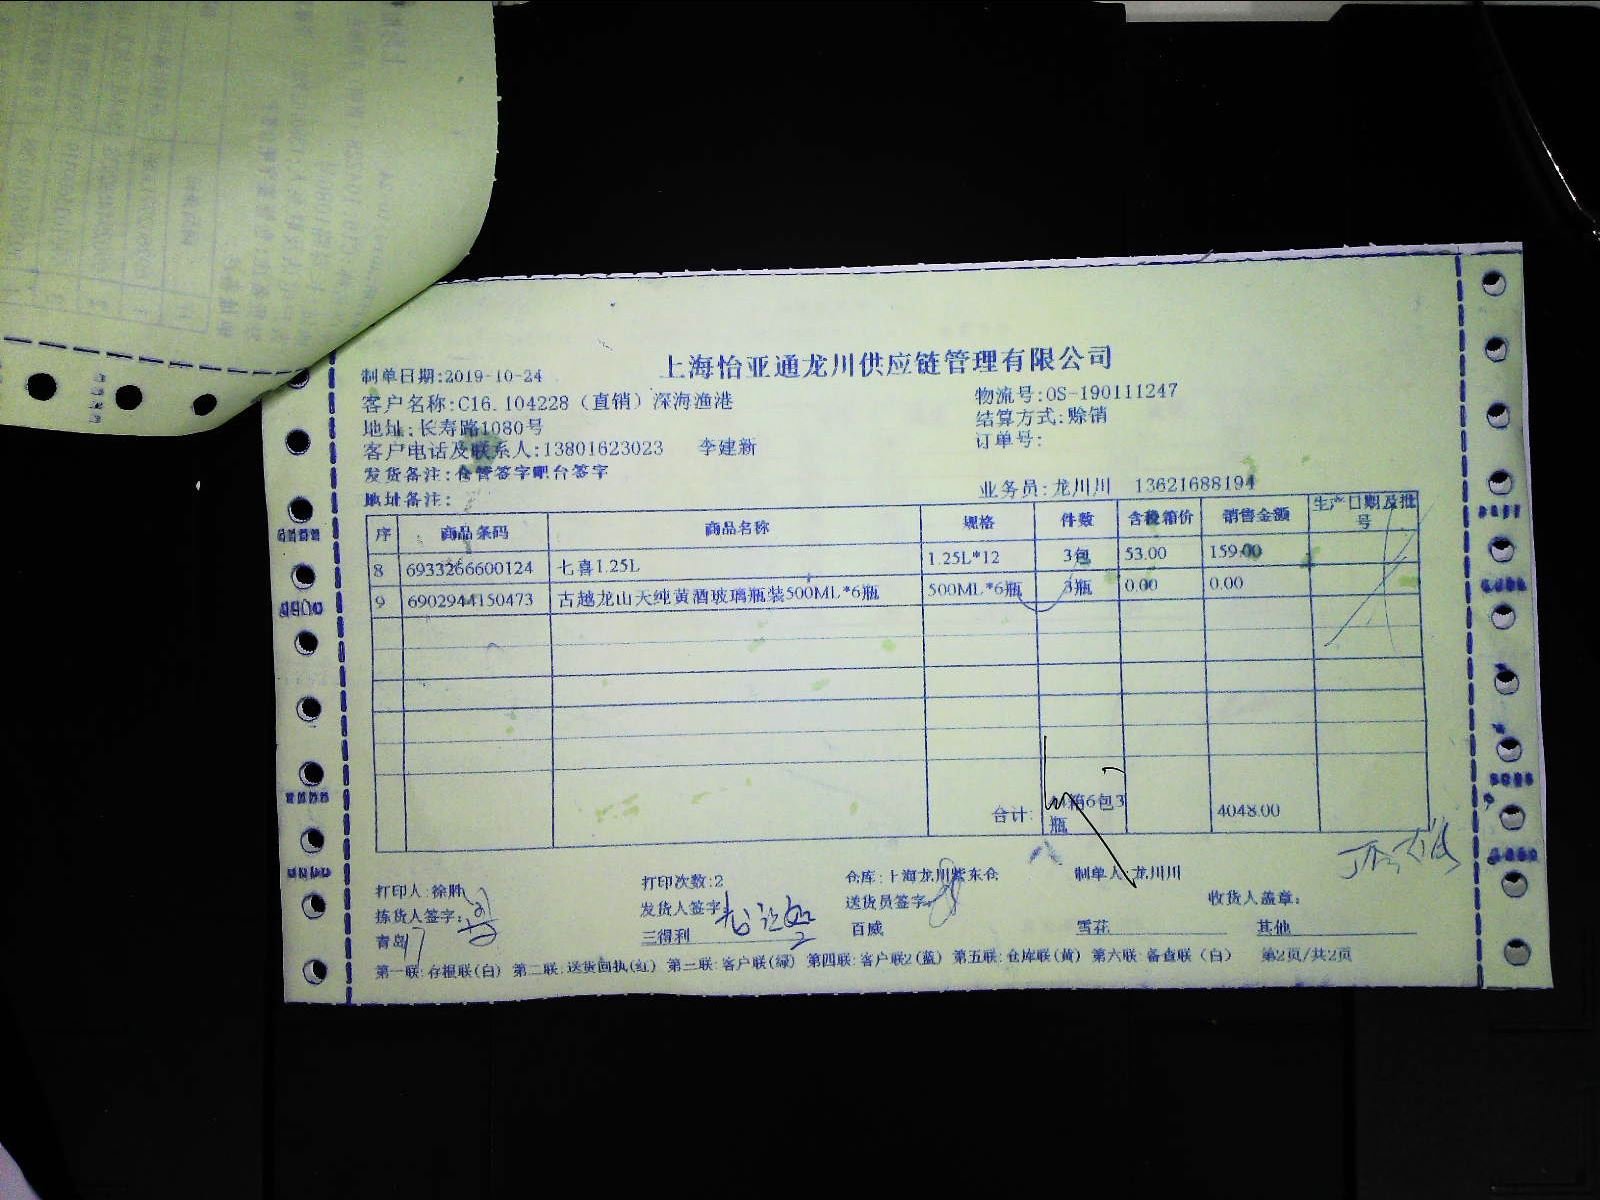 上海怡亚通龙川供应链管理有限公司
制单日期:2019-10-24
客户名称:C16.104228（直销）深海渔港 物流号:OS-190111247
地址:长寿路1080号 结算方式:赊销
客户电话及联系人:13801623023 李建新 订单号:
发货备注:仓管签字吧台签字
地址备注: 业务员:龙川川 13621688194
序 商品条码 商品名称 规格 件数 含税箱价 销售金额 生产日期及批号
8 6933266600124 七喜1.25L 1.25L*12 3包 53.00 159.00
9 6902944150473 古越龙山天纯黄酒玻璃瓶装500ML*6瓶 500ML*6瓶 3瓶 0.00 0.00
合计: 箱6包3瓶 4048.00
打印人:徐胜 打印次数:2 仓库:上海龙川紫东仓 制单人:龙川川
拣货人签字: 发货人签字: 送货员签字: 收货人盖章:
青岛 三得利 百威 雪花 其他
第一联:存根联(白) 第二联:送货回执(红) 第三联:客户联(绿) 第四联:客户联2(蓝) 第五联:仓库联(黄) 第六联:备查联（白） 第2页/共2页